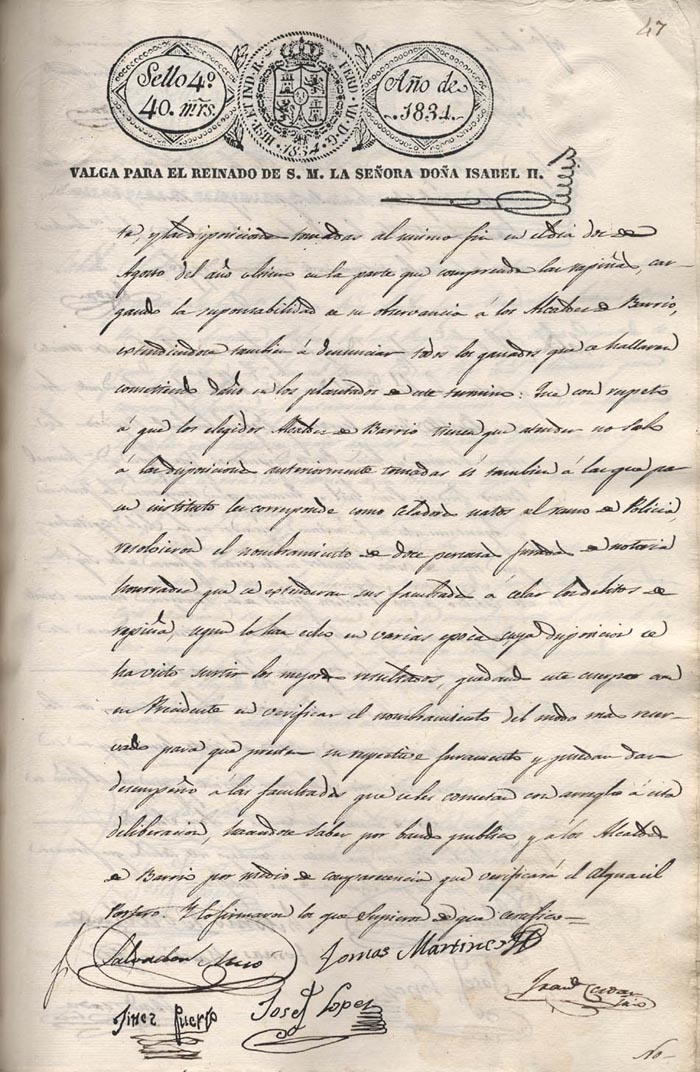 47
Sello 4º
40. mrs.
HISP. ET IND. R. FERD. III. D. G.
1834
Año de
1834.
VALGA PARA EL REINADO DE S. M. LA SEÑORA DOÑA ISABEL II.
ta, y las disposiciones tomadas al mismo fin en el dia doce de
Agosto del año ultimo en la parte que comprende las rapiñas, car-
gando la responsabilidad de su observancia á los Alcaldes de Barrio,
estendiendose tambien á denunciar todos los ganados que se hallaren
cometiendo daño en los plantados de este termino: Que con respeto
á que los elegidos Alcaldes de Barrio tienen que atender no solo
á las disposiciones anteriormente tomadas si tambien á las que por
su instituto les corresponde como celadores natos del ramo de Policia,
resolvieron el nombramiento de doce personas juradas de notoria
honrradez que se estenderan sus facultades á celar los delitos de
rapiña, segun lo han echo en varias epocas cuya disposicion se
ha visto surtir los mejores resultados, quedando este cuerpo con
su Presidente en verificar el nombramiento del modo mas reser-
vado para que presten su respectivo juramento y puedan dar
desempeño á las facultades que se les cometan con arreglo á esta
deliberacion, haciendose saber por bando publico y á los Alcaldes
de Barrio por medio de comparecencia que verificará el Alguacil
Portero. Y lo firmaron los que supieron de que certifico =
Salvador Mico Tomas Martinez
Jines Puerto Josef Lopez
No-